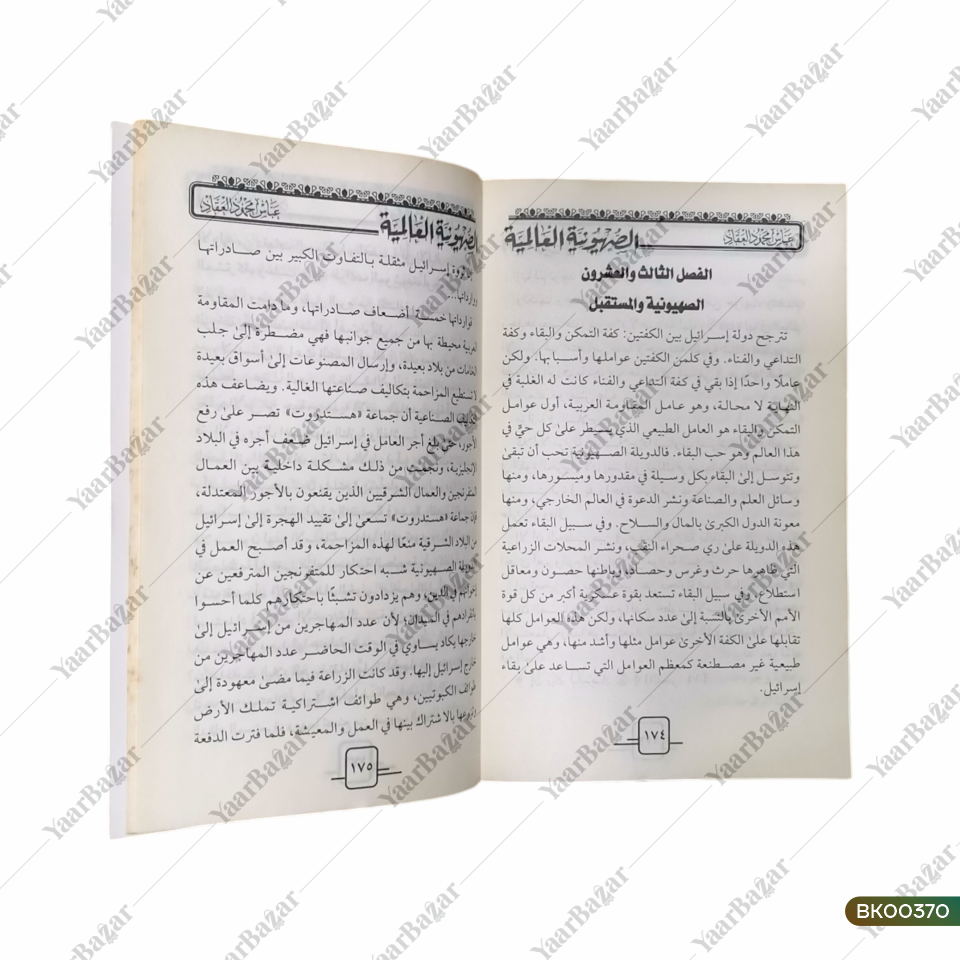 الصهيونية العالمية
عباس محمود العقاد
الفصل الثالث والعشرون
الصهيونية والمستقبل
تترجح دولة إسرائيل بين الكفتين: كفة التمكن والبقاء وكفة
التداعي والفناء. وفي كلمن الكفتين عواملها وأسبابها. ولكن
عاملًا واحدًا إذا بقي في كفة التداعي والفناء كانت له الغلبة في
النهاية لا محالة، وهو عامل المقاومة العربية، أول عوامل
التمكن والبقاء هو العامل الطبيعي الذي يسيطر علىٰ كل حيٍّ في
هذا العالم وهو حب البقاء. فالدويلة الصهيونية تحب أن تبقىٰ
وتتوسل إلىٰ البقاء بكل وسيلة في مقدورها وميسورها، ومنها
وسائل العلم والصناعة ونشر الدعوة في العالم الخارجي، ومنها
معونة الدول الكبرىٰ بالمال والسلاح. وفي سبيل البقاء تعمل
هذه الدويلة علىٰ ري صحراء النقب، ونشر المحلات الزراعية
التي ظاهرها حرث وغرس وحصاد، وباطنها حصون ومعاقل
استطلاع، وفي سبيل البقاء تستعد بقوة عسكرية أكبر من كل قوة
الأمم الأخرىٰ بالنسبة إلىٰ عدد سكانها، ولكن هذه العوامل كلها
تقابلها علىٰ الكفة الأخرىٰ عوامل مثلها وأشد منها، وهي عوامل
طبيعية غير مصطنعة كمعظم العوامل التي تساعد علىٰ بقاء
إسرائيل.
١٧٤
الصهيونية العالمية
عباس محمود العقاد
إسرائيل مثقلة بالتفاوت الكبير بين صادراتها
ووارداتها...
فوارداتها خمسة أضعاف صادراتها، وما دامت المقاومة
العربية محيطة بها من جميع جوانبها فهي مضطرة إلىٰ جلب
الخامات من بلاد بعيدة، وإرسال المصنوعات إلىٰ أسواق بعيدة
لا تستطيع المزاحمة بتكاليف صناعتها الغالية. ويضاعف هذه
التكاليف الصناعية أن جماعة «هستدروت» تصر علىٰ رفع
الأجور، حتىٰ بلغ أجر العامل في إسرائيل ضعف أجره في البلاد
الإنجليزية، ونجمت من ذلك مشكلة داخلية بين العمال
المتفرنجين والعمال الشرقيين الذين يقنعون بالأجور المعتدلة،
فإن جماعة «هستدروت» تسعىٰ إلىٰ تقييد الهجرة إلىٰ إسرائيل
من البلاد الشرقية منعًا لهذه المزاحمة، وقد أصبح العمل في
الدويلة الصهيونية شبه احتكار للمتفرنجين المترفعين عن
إخوانهم في الدين، وهم يزدادون تشبثًا باحتكارهم كلما أحسوا
بانفرادهم في الميدان؛ لأن عدد المهاجرين من إسرائيل إلىٰ
خارجها يكاد يساوي في الوقت الحاضر عدد المهاجرين من
خارج إسرائيل إليها. وقد كانت الزراعة فيما مضىٰ معهودة إلىٰ
طوائف الكبوتيين، وهي طوائف اشتراكية تملك الأرض
وتزرعها بالاشتراك بينها في العمل والمعيشة، فلما فترت الدفعة
١٧٥
BK00370
YaarBazar